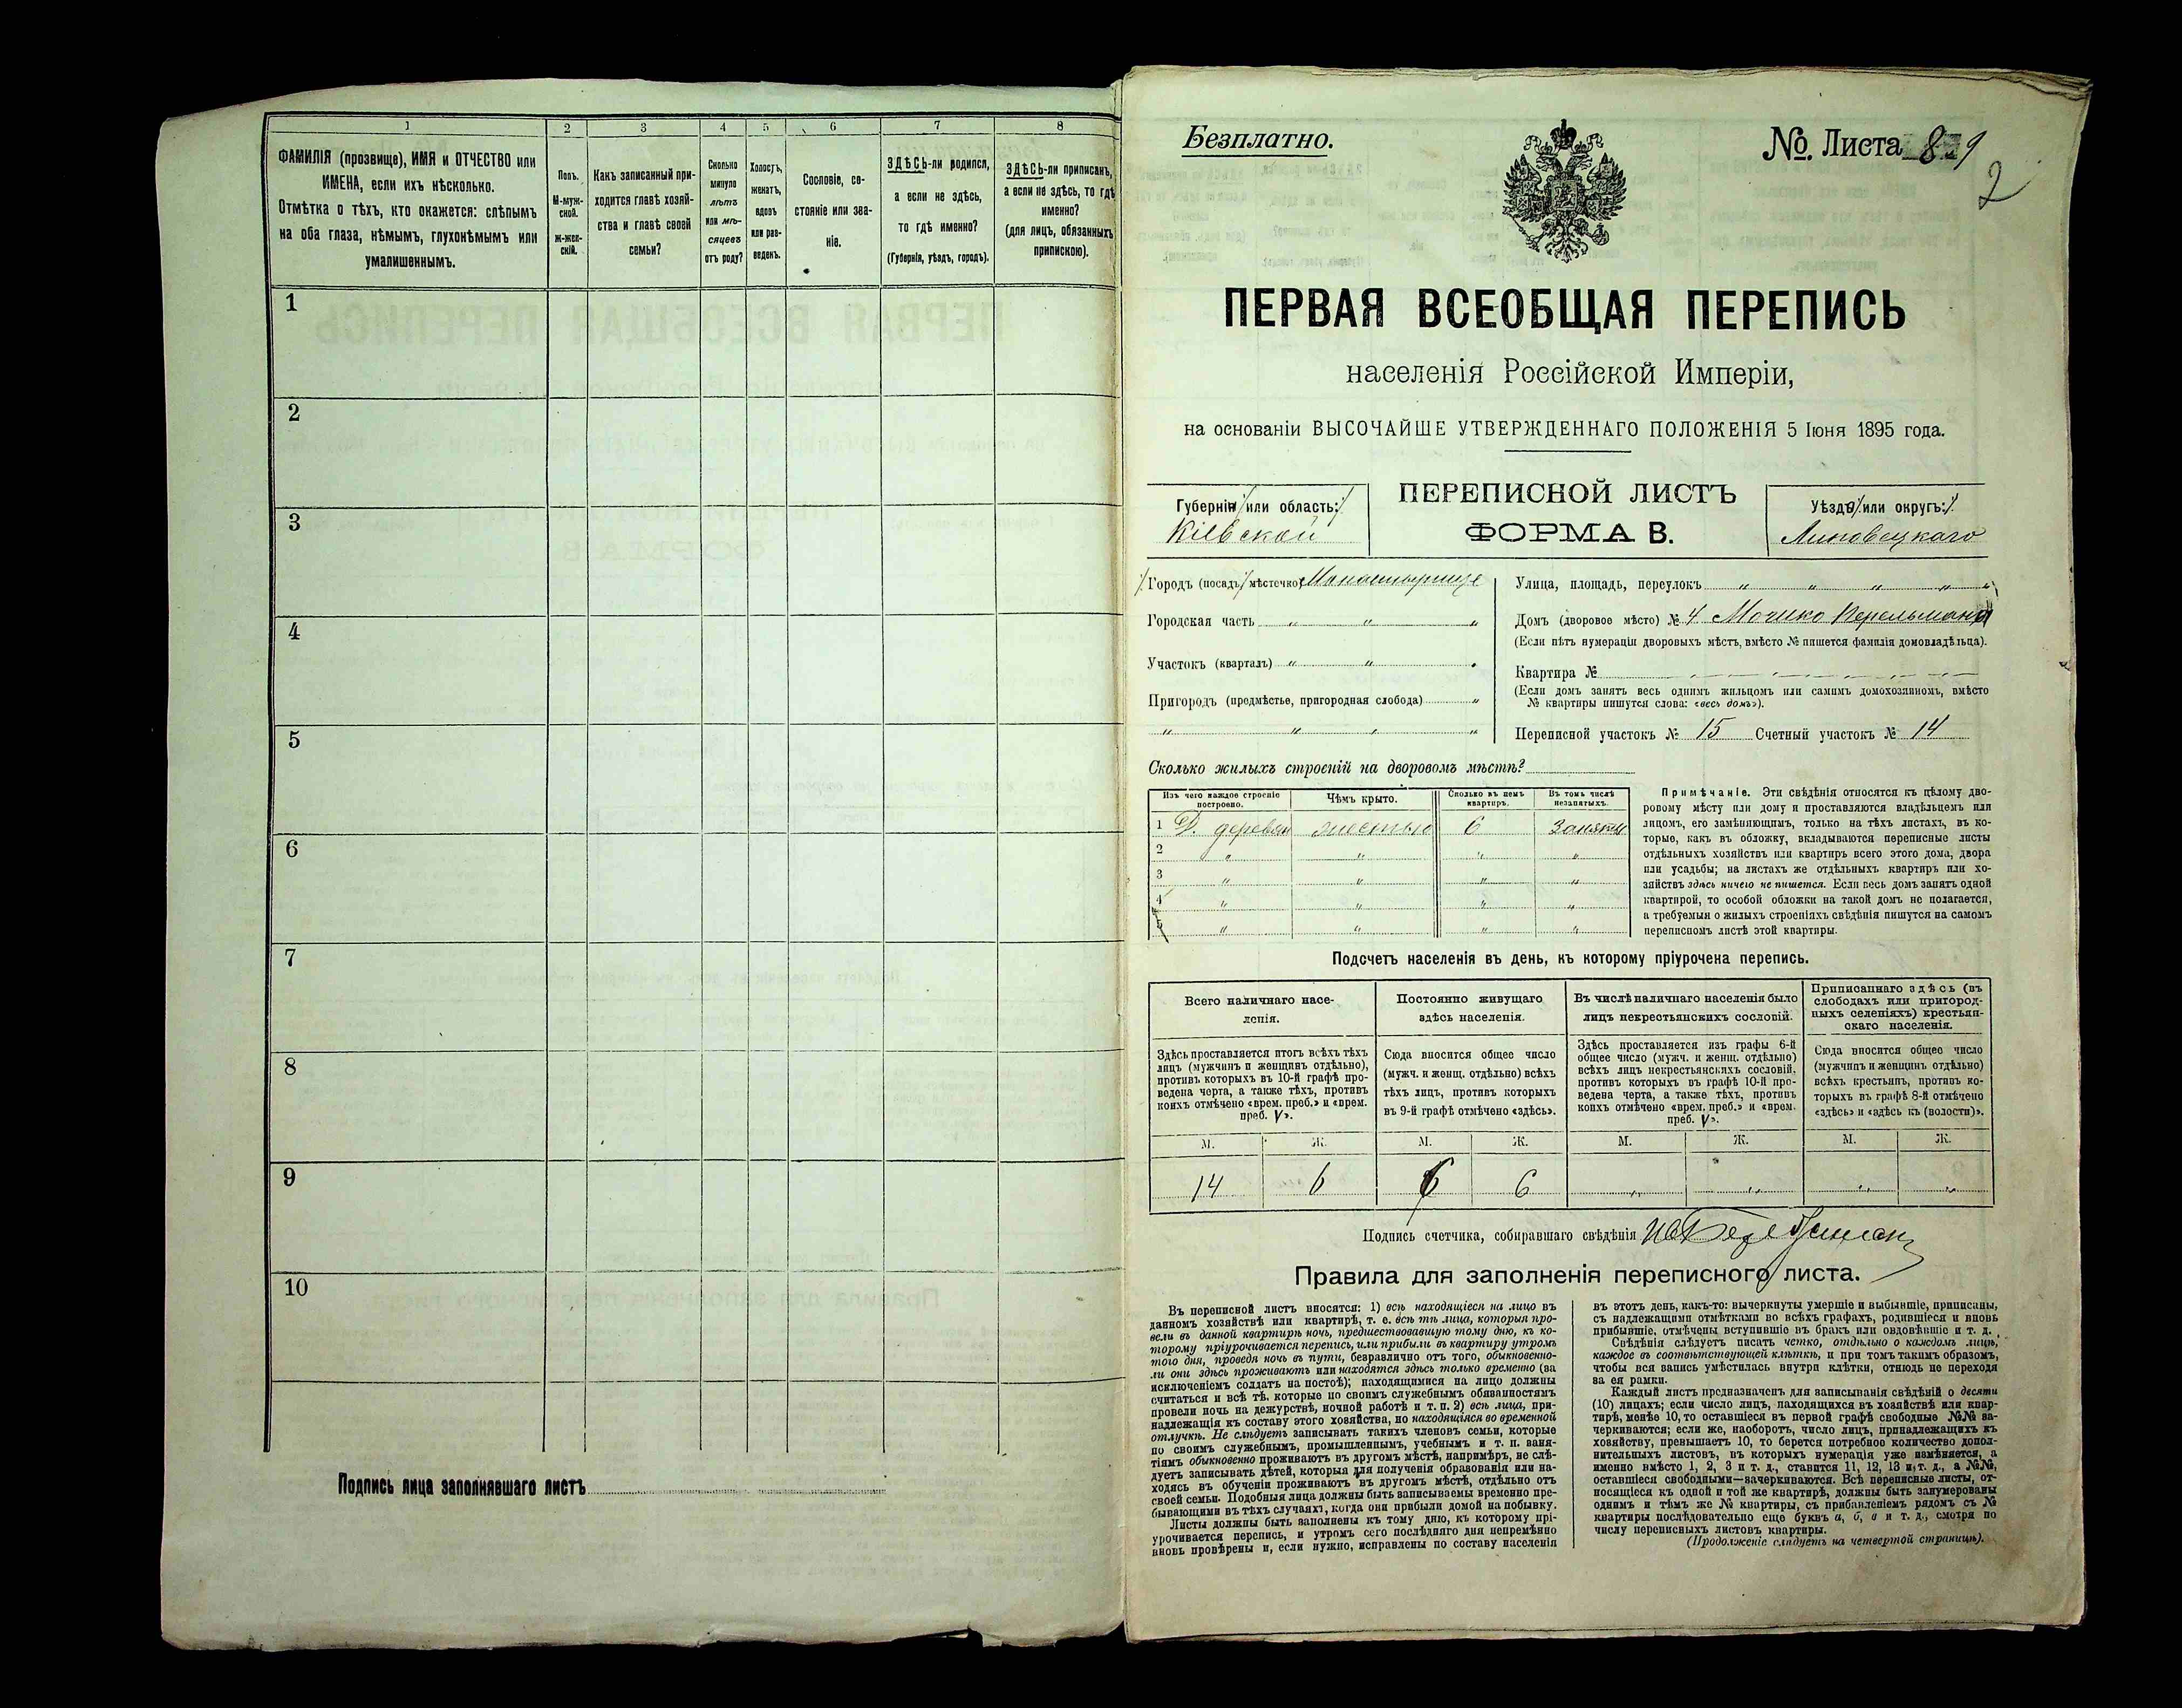 1 2 3 4 5 6 7 8
ФАМИЛІЯ (прозвище), ИМЯ и ОТЧЕСТВО или
ИМЕНА, если ихъ нѣсколько.
Отмѣтка о тѣхъ, кто окажется: слѣпымъ
на оба глаза, нѣмымъ, глухонѣмымъ или
умалишеннымъ.
Полъ.
М-муж-
ской.
Ж-жен-
скій.
Какъ записанный при-
ходится главѣ хозяй-
ства и главѣ своей
семьи?
Сколько
минуло
лѣтъ
или мѣ-
сяцевъ
отъ роду?
Холостъ,
женатъ,
вдовъ
или раз-
веденъ.
Сословіе, со-
стояніе или зва-
ніе.
ЗДѢСЬ-ли родился,
а если не здѣсь,
то гдѣ именно?
(Губернія, уѣздъ, городъ).
ЗДѢСЬ-ли приписанъ,
а если не здѣсь, то гдѣ
именно?
(для лицъ, обязанныхъ
припискою).
1
2
3
4
5
6
7
8
9
10
Подпись лица заполнявшаго листъ
Безплатно.
№ Листа 89
2
ПЕРВАЯ ВСЕОБЩАЯ ПЕРЕПИСЬ
населенія Россійской Имперіи,
на основаніи ВЫСОЧАЙШЕ УТВЕРЖДЕННАГО ПОЛОЖЕНІЯ 5 Іюня 1895 года.
Губернія или область:
Кіевской
ПЕРЕПИСНОЙ ЛИСТЪ
ФОРМА В.
Уѣздъ или округъ:
Липовецкаго
Городъ (посадъ, мѣстечко) Монастырище
Городская часть " " "
Участокъ (кварталъ) " "
Пригородъ (предмѣстье, пригородная слобода) "
Улица, площадь, переулокъ " " " " "
Домъ (дворовое мѣсто) № 4 Мошко Перельмана
(Если нѣтъ нумераціи дворовыхъ мѣстъ, вмѣсто № пишется фамилія домовладѣльца).
Квартира №
(Если домъ занятъ весь однимъ жильцомъ или самимъ домохозяиномъ, вмѣсто
№ квартиры пишутся слова: «весь домъ»).
Переписной участокъ № 15 Счетный участокъ № 14
Сколько жилыхъ строеній на дворовомъ мѣстѣ?
Изъ чего каждое строеніе
построено.
Чѣмъ крыто.
Сколько въ немъ
квартиръ.
Въ томъ числѣ
незанятыхъ.
1 Д. деревян жестью 6 Заняты
2 " " " "
3 " " " "
4 " " " "
5 " " " "
Примѣчаніе. Эти свѣдѣнія относятся къ цѣлому дво-
ровому мѣсту или дому и проставляются владѣльцемъ или
лицомъ, его замѣняющимъ, только на тѣхъ листахъ, въ ко-
торые, какъ въ обложку, вкладываются переписные листы
отдѣльныхъ хозяйствъ или квартиръ всего этого дома, двора
или усадьбы; на листахъ же отдѣльныхъ квартиръ или хо-
зяйствъ здѣсь ничего не пишется. Если весь домъ занятъ одной
квартирой, то особой обложки на такой домъ не полагается,
а требуемыя о жилыхъ строеніяхъ свѣдѣнія пишутся на самомъ
переписномъ листѣ этой квартиры.
Подсчетъ населенія въ день, къ которому пріурочена перепись.
Всего наличнаго насе-
ленія.
Постоянно живущаго
здѣсь населенія.
Въ числѣ наличнаго населенія было
лицъ некрестьянскихъ сословій.
Приписаннаго здѣсь (въ
слободахъ или пригород-
ныхъ селеніяхъ) крестьян-
скаго населенія.
Здѣсь проставляется итогъ всѣхъ тѣхъ
лицъ (мужчинъ и женщинъ отдѣльно),
противъ которыхъ въ 10-й графѣ про-
ведена черта, а также тѣхъ, противъ
коихъ отмѣчено «врем. преб.» и «врем.
преб. V».
Сюда вносится общее число
(мужч. и женщ. отдѣльно) всѣхъ
тѣхъ лицъ, противъ которыхъ
въ 9-й графѣ отмѣчено «здѣсь».
Здѣсь проставляется изъ графы 6-й
общее число (мужч. и женщ. отдѣльно)
всѣхъ лицъ некрестьянскихъ сословій,
противъ которыхъ въ графѣ 10-й про-
ведена черта, а также тѣхъ, противъ
коихъ отмѣчено «врем. преб.» и «врем.
преб. V».
Сюда вносится общее число
(мужчинъ и женщинъ отдѣльно)
всѣхъ крестьянъ, противъ ко-
торыхъ въ графѣ 8-й отмѣчено
«здѣсь» и «здѣсь къ (волости)».
М. Ж. М. Ж. М. Ж. М. Ж.
14 6 6 6 " " " "
Подпись счетчика, собиравшаго свѣдѣнія
Правила для заполненія переписного листа.
Въ переписной листъ вносятся: 1) всѣ находящіеся на лицо въ
данномъ хозяйствѣ или квартирѣ, т. е. всѣ тѣ лица, которыя про-
вели въ данной квартирѣ ночь, предшествовавшую тому дню, къ ко-
торому пріурочивается перепись, или прибыли въ квартиру утромъ
того дня, проведя ночь въ пути, безразлично отъ того, обыкновенно-
ли они здѣсь проживаютъ или находятся здѣсь только временно (за
исключеніемъ солдатъ на постоѣ); находящимися на лицо должны
считаться и всѣ тѣ, которые по своимъ служебнымъ обязанностямъ
провели ночь на дежурствѣ, ночной работѣ и т. п. 2) всѣ лица, при-
надлежащія къ составу этого хозяйства, но находящіяся во временной
отлучкѣ. Не слѣдуетъ записывать такихъ членовъ семьи, которые
по своимъ служебнымъ, промышленнымъ, учебнымъ и т. п. заня-
тіямъ обыкновенно проживаютъ въ другомъ мѣстѣ, напримѣръ, не слѣ-
дуетъ записывать дѣтей, которыя для полученія образованія или на-
ходясь въ обученіи проживаютъ въ другомъ мѣстѣ, отдѣльно отъ
своей семьи. Подобныя лица должны быть записываемы временно пре-
бывающими въ тѣхъ случаяхъ, когда они прибыли домой на побывку.
Листы должны быть заполнены къ тому дню, къ которому прі-
урочивается перепись, и утромъ сего послѣдняго дня непремѣнно
вновь провѣрены и, если нужно, исправлены по составу населенія
въ этотъ день, какъ-то: вычеркнуты умершіе и выбывшіе, приписаны,
съ надлежащими отмѣтками во всѣхъ графахъ, родившіеся и вновь
прибывшіе, отмѣчены вступившіе въ бракъ или овдовѣвшіе и т. д.
Свѣдѣнія слѣдуетъ писать четко, отдѣльно о каждомъ лицѣ,
каждое въ соотвѣтствующей клѣткѣ, и при томъ такимъ образомъ,
чтобы вся запись умѣстилась внутри клѣтки, отнюдь не переходя
за ея рамки.
Каждый листъ предназначенъ для записыванія свѣдѣній о десяти
(10) лицахъ; если число лицъ, находящихся въ хозяйствѣ или квар-
тирѣ, менѣе 10, то оставшіеся въ первой графѣ свободные №№ за-
черкиваются; если же, наоборотъ, число лицъ, принадлежащихъ къ
хозяйству, превышаетъ 10, то берется потребное количество допол-
нительныхъ листовъ, въ которыхъ нумерація уже измѣняется, а
именно вмѣсто 1, 2, 3 и т. д., ставится 11, 12, 13 и т. д., а №№,
оставшіеся свободными—зачеркиваются. Всѣ переписные листы, от-
носящіеся къ одной и той же квартирѣ, должны быть занумерованы
однимъ и тѣмъ же № квартиры, съ прибавленіемъ рядомъ съ №
квартиры послѣдовательно еще буквъ а, б, в и т. д., смотря по
числу переписныхъ листовъ квартиры.
(Продолженіе слѣдуетъ на четвертой страницѣ).